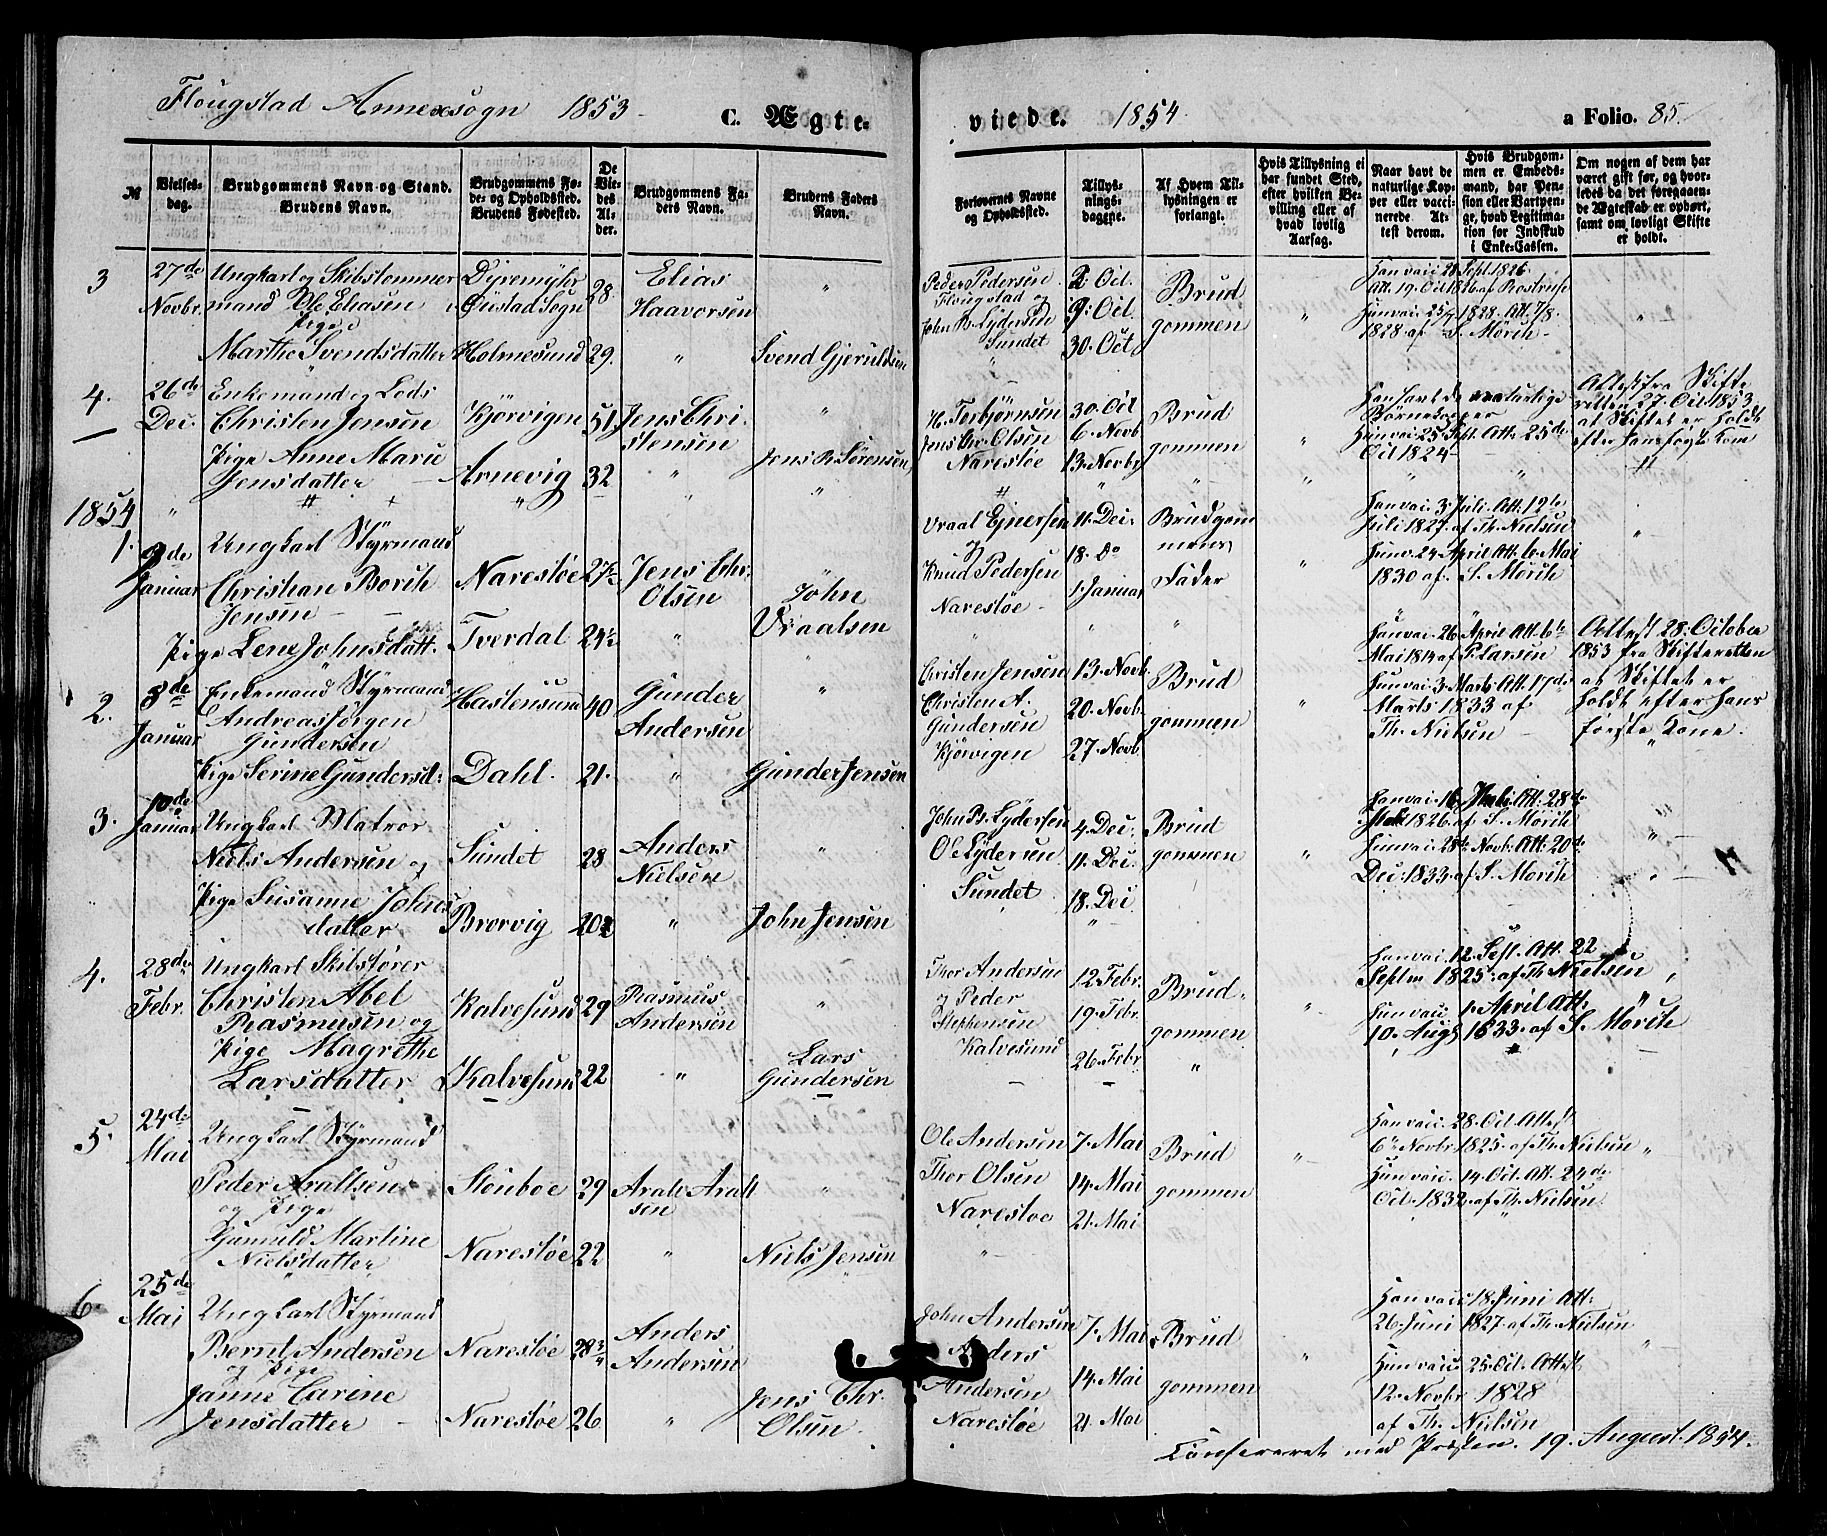 Flougstad Annexsogn 1853 C. Ægte-
viede. 1854 a Folio. 85.
№
Vielses-
dag.
Brudgommens Navn og Stand.
Brudens Navn.
Brudgommens Fø-
de- og Opholdssted.
Brudens Fødested.
De
Vie-
des
Al-
der.
Brudgommens Fa-
ders Navn.
Brudens Faders
Navn.
Forlovernes Navne
og Opholdssted.
Tillys-
nings-
dagene.
Af Hvem Til-
lysningen er
forlangt.
Hvis Tillysning ei
har fundet Sted,
efter hvilken Be-
villing eller af
hvad lovlig
Aarsag.
Naar havt de
naturlige Kop-
per eller vacci-
nerede. At-
test derom.
Hvis Brudgom-
men er Embeds-
mand, har Pen-
sion eller Vartpen-
ge, hvad Legitima-
tion for Indskud
i Enke-Cassen.
Om nogen af dem har
været gift før, og hvor-
ledes da det foregaaen-
de Ægteskab er ophørt,
samt om lovligt Skifte
er holdt.
3
27de
Novbr.
Ungkarl og Skibstømmer
mand Ole Eliasen
Pige
Marthe Svendsdatter
Dyremyhr
Øiestad Sogn
Holmesund
28
29.
Elias
Haavorsen
Svend Gjeruldsen
Peder Pedersen
Flougstad og
John B. Lydersen
Sundet
2. Oct.
9. Oct.
30. Oct
Brud
gommen
Han vacc 28 Sept. 1826
Att. 19. Oct 1826 af Rostrup
Hun vac. 25/7 1828. Att. 7/8.
1828 af S. Mörch
4.
26de
Dec.
Enkemand og Lods
Christen Jensen
Pige Anne Marie
Jensdatter
Kjörvigen
Arnevig
51
32
Jens Chri
stensen
Jens R. Sörensen
H. Torbjörnsen
Jens Chr. Olsen
Narestöe
30. Oct
6. Novb
13. Novbr
Brud
gommen
Han havt de naturlige
Börnekopper
Hun vac. 25 Sept. Att. 25de
Oct 1824
Attest fra Skifte
retten 27. Oct 1853
at Skiftet er holdt
efter hans förste Kone
1854
1.
9de
Januar
Ungkarl Styrmand
Christian Borch
Jensen
Pige Lene Johnsdatt.
Narestöe
Tverdal
27½
24½
Jens Chr.
Olsen
John
Vraalsen
Vraal Ejnersen
og
Knud Pedersen
Narestöe
11. Dec.
18. Do
1. Januar
Brudgom
mens
Fader
Han vac. 3. Juli. Att. 12te
Juli 1827. af Th. Nielsen
Hun v. 24 April Att. 6. Mai
1830 af. S. Mörch
2.
8de
Januar
Enkemand Styrmand
Andreas Jörgen
Gundersen
Pige Serine Gundersd.
Hastensund
Dahl.
40
21.
Gunder
Andersen
Gunder Jensen
Christen Jensen
Christen A.
Gundersen
Kjörvigen
13. Novb
20. Novb.
27. Novb.
Brud
gommen
Han vac. 26 April Att. 6te
Mai 1814 af P. Larsen
Hun vac. 3. Marts Att. 17de
Marts 1833 af
Th. Nielsen
Attest 28. October
1853 fra Skifteretten
at Skiftet er
holdt efter hans
förste Kone.
3.
10de
Januar
Ungkarl Matros
Niels Andersen og
Pige Susanne Johns
datter
Sundet
Brorvig
28
20½
Anders
Nielsen
John Jensen
John B. Lydersen
Ole Lydersen
Sundet
4. Dec.
11. Dec.
18. Dec
Brud
gommen
Han vac. 16 Att. 28de
1826 af S. Mörch
Hun vac. 28de Novb. Att. 20de
Dec. 1833 af S. Mörch
4.
28de
Febr.
Ungkarl Skibsförer
Christen Abel
Rasmusen og
Pige Magrethe
Larsdatter
Kalvesund
Kalvesund
29
22
Rasmus
Andersen
Lars
Gundersen
Thor Andersen
og Peder
Stephensen
Kalvesund
12. Febr.
19. Febr.
26. Febr
Brud
gommen
Han vac. 12 Sept. Att. 22
Septbr 1825. af Th. Nielsen
Hun vacc. 1. April Att.
10. Aug. 1833 af S. Mörch
5.
24de
Mai
Ungkarl Styrmand
Peder Araltsen
og Pige
Gunuld Martine
Nielsdatter
Stöuboe
Narestöe
29
22
Aralt Aralt
sen
Niels Jensen
Ole Andersen
Thor Olsen
Narestöe
7. Mai
14. Mai
21. Mai
Brud
gommen
Han vacc. 28. Oct. Attest
6te Novbr. 1825. af Th. Nielsen
Hun vacc. 14. Oct. Att. 24de
Oct. 1832. af Th. Nielsen
6
25de
Mai
Ungkarl Styrmand
Bernt Andersen
og Pige
Janne Carine
Jensdatter
Narestöe
Narestöe
28¾
26
Anders
Andersen
Jens Chr.
Olsen
John Andersen
Anders
Andersen
Narestöe
7. Mai
14. Mai
21. Mai
Brud
gommen
Han vacc. 18. Juni Att.
26. Juni 1827. af Th. Nielsen
Hun vacc. 25. Oct. Attest
12. Novbr. 1828
af Th. Nielsen
Confereret med Præsten. 19. August. 1854.